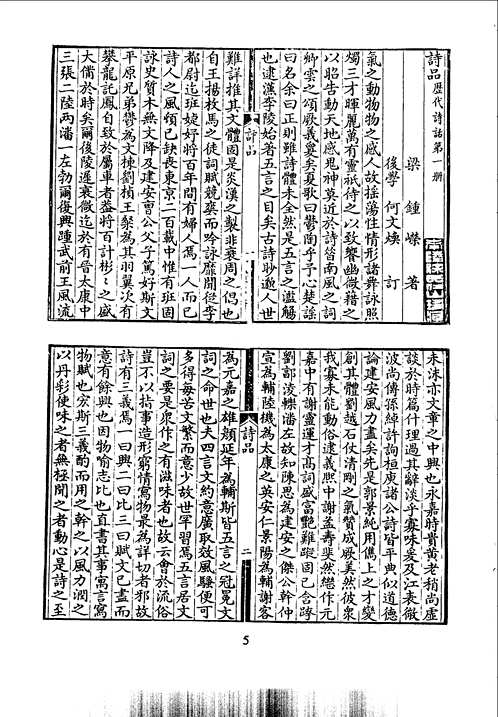 詩品 歷代詩話第一冊
梁 鍾嶸 著
後學 何文煥 訂
氣之動物物之感人故搖蕩性情形諸舞詠照
燭三才暉麗萬有靈祇待之以致饗幽微藉之
以昭告動天地感鬼神莫近於詩昔南風之詞
卿雲之頌厥義夐矣夏歌曰鬱陶乎予心楚謠
曰名余曰正則雖詩體未全然是五言之濫觴
也逮漢李陵始著五言之目矣古詩眇邈人世
詩品 一
難詳推其文體固是炎漢之製非衰周之倡也
自王揚枚馬之徒詞賦競爽而吟詠靡聞從李
都尉迄班婕妤將百年間有婦人焉一人而已
詩人之風頓已缺喪東京二百載中惟有班固
詠史質木無文降及建安曹公父子篤好斯文
平原兄弟鬱為文棟劉楨王粲為其羽翼次有
攀龍託鳳自致於屬車者蓋將百計彬〻之盛
大備於時矣爾後陵遲衰微迄於有晉太康中
三張二陸兩潘一左勃爾復興踵武前王風流
未沬亦文章之中興也永嘉時貴黃老稍尚虛
談於時篇什理過其辭淡乎寡味爰及江表微
波尚傳孫綽許詢桓庾諸公詩皆平典似道德
論建安風力盡矣先是郭景純用儁上之才變
創其體劉越石仗清剛之氣贊成厥美然彼眾
我寡未能動俗逮義熙中謝益壽斐然繼作元
嘉中有謝靈運才高詞盛富艷難蹤固已含跨
劉郭淩轢潘左故知陳思為建安之傑公幹仲
宣為輔陸機為太康之英安仁景陽為輔謝客
詩品 二
為元嘉之雄顏延年為輔斯皆五言之冠冕文
詞之命世也夫四言文約意廣取效風騷便可
多得每苦文繁而意少故世罕習焉五言居文
詞之要是眾作之有滋味者也故云會於流俗
豈不以指事造形窮情寫物最為詳切者邪故
詩有三義焉一曰興二曰比三曰賦文已盡而
意有餘興也因物喻志比也直書其事寓言寫
物賦也宏斯三義酌而用之幹之以風力潤之
以丹彩使味之者無極聞之者動心是詩之至
5